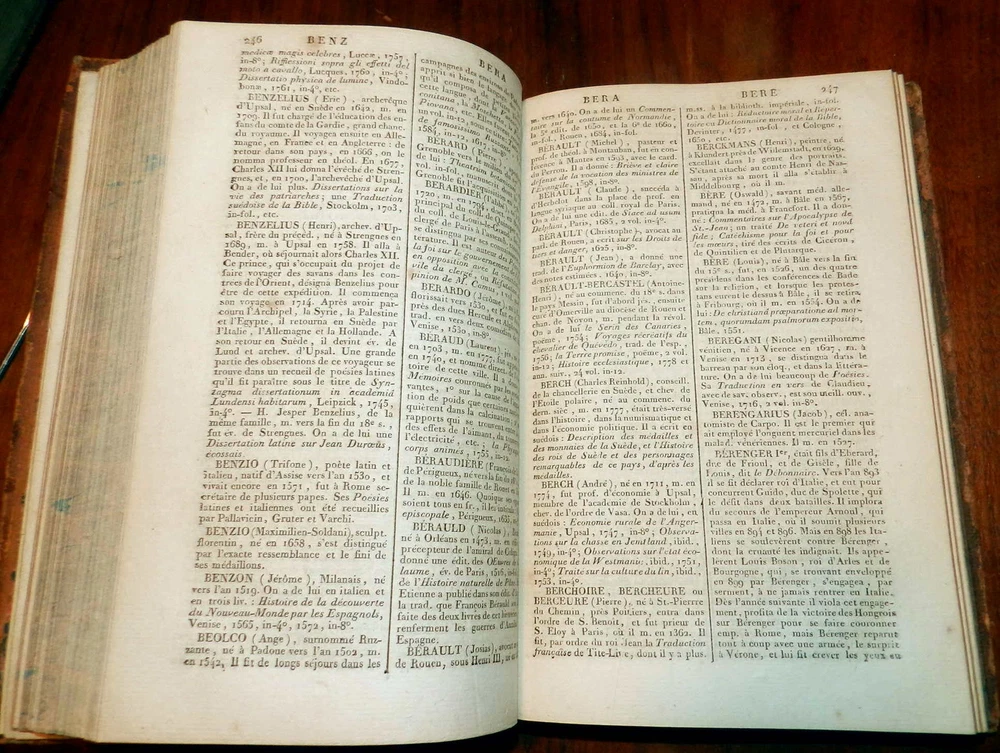 246 BENZ
medicæ magis celebres, Lucæ, 1757,
in-8°; Riflessioni sopra gli effetti del
moto a cavallo, Lucques, 1760, in-4°;
Dissertatio physica de lumine, Vindo-
bonæ, 1761, in-4°, etc.
BENZELIUS (Eric), archevêque
d'Upsal, né en Suède en 1642, m. en
1709. Il fut chargé de l'éducation des en-
fans du comte de la Gardie, grand chanc.
du royaume. Il voyagea ensuite en Alle-
magne, en France et en Angleterre: de
retour dans son pays, en 1666, on le
nomma professeur en théol. En 1677,
Charles XII lui donna l'évêché de Stren-
gnes, et, en 1700, l'archevêché d'Upsal.
On a de lui plus. Dissertations sur la
vie des patriarches; une Traduction
suédoise de la Bible, Stockolm, 1703,
in-fol., etc.
BENZELIUS (Henri), archev. d'Up-
sal, frère du précéd., né à Strengnes en
1689, m. à Upsal en 1758. Il alla à
Bender, où séjournait alors Charles XII.
Ce prince, qui s'occupait du projet de
faire voyager des savans dans les con-
trées de l'Orient, désigna Benzelius pour
être de cette expédition. Il commença
son voyage en 1714. Après avoir par-
couru l'Archipel, la Syrie, la Palestine
et l'Egypte, il retourna en Suède par
l'Italie, l'Allemagne et la Hollande. A
son retour en Suède, il devint év. de
Lund et archev. d'Upsal. Une grande
partie des observations de ce voyageur se
trouve dans un recueil de poésies latines
qu'il fit paraître sous le titre de Syn-
tagma dissertationum in academiâ
Lundensi habitarum, Leipzick, 1745,
in-4°. — H. Jesper Benzelius, de la
même famille, m. vers la fin du 18e s.,
fut év. de Strengnes. On a de lui une
Dissertation latine sur Jean Duræüs,
écossais.
BENZIO (Trifone), poète latin et
italien, natif d'Assise vers l'an 1530, et
vivait encore en 1571, fut à Rome se-
crétaire de plusieurs papes. Ses Poésies
latines et italiennes ont été recueillies
par Pallavicin, Gruter et Varchi.
BENZIO (Maximilien-Soldani), sculpt.
florentin, né en 1658, s'est distingué
par l'exacte ressemblance et le fini de
ses médaillons.
BENZON (Jérôme), Milanais, né
vers l'an 1519. On a de lui en italien et
en trois liv.: Histoire de la découverte
du Nouveau-Monde par les Espagnols,
Venise, 1565, in-4°, 1572, in-8°.
BEOLCO (Ange), surnommé Ruz-
zante, né à Padone vers l'an 1502, m.
en 1542. Il fit de longs séjours dans les
BERA
campagnes des environs de
apprit si bien le
qu'il composa
cette langue dont
BÉRARD (Pierre),
Grenoble vers
BERARDIER
1720, m. en 1794, doct.
principal du coll. de
du coll. de Louis-le-Grand
clergé de Paris à l'assemblée
se distingua par ses
térature. Il est auteur des
la foi sur le gouvernement
en opposition avec la
vile du clergé, ou Réfutation
pinion de M. Camus
BERARDO (Jérôme),
florissait vers 1530,
près des ducs Hercule et
trad. en vers deux comédies
Venise, 1530, in-8°.
BÉRAUD (Laurent),
en 1703, m. en 1777, fut
en 1740, et nommé direct.
toire de cette ville. Il a
Mémoires couronnés par les
vantes, 1° sur la cause de
tion de poids que certaines
quièrent dans la calcination,
rapports qui se trouvent
des effets de l'aimant, du
l'électricité, etc.; la Physique
corps animes, 1755, in-12.
BÉRAUDIÈRE (François de la)
de Périgueux, né vers la fin
de la noble famille de Rouet
Il m. en 1646. Quoique ses
soient tous en fr., il les intitula
episcopale, Périgueux, 1635, in-
BÉRAULD (Nicolas),
né à Orléans en 1473, m. en
précepteur de l'amiral de Coligny
donné une édit. des OEuvres de Guil-
laume, év. de Paris, 1516, in-
de l'Histoire naturelle de Pline
Etienne a publié dans son éd.
la trad. que François Bérauld
faite des deux livres de cet hist.
renferment les guerres d'Annibal
Espagne.
BÉRAULT (Josias), avocat
de Rouen, sous Henri III,
BERA
m. vers 1640. On a de lui un Commen-
taire sur la coutume de Normandie,
la 5e édit. de 1650, et la 6e de 1660,
Rouen, 1684, in-fol.
BÉRAULT (Michel), pasteur et
prof. de théol. à Montauban, fut en con-
férence à Mantes en 1593, avec le card.
du Perron. Il a donné: Briève et claire
défense de la vocation des ministres de
l'Evangile, 1598, in-8°.
BÉRAULT (Claude), succéda à
d'Herbelot dans la place de prof. en
langue syriaque au coll. royal de Paris.
On a de lui une édit. de Stace ad usum
Delphini, Paris, 1685, 2 vol. in-4°.
BÉRAULT (Christophe), avocat au
parl. de Rouen, a écrit sur les Droits de
tiers et danger, 1625, in-8°.
BÉRAULT (Jean), a donné une
trad. de l'Euphormion de Barclay, avec
des notes estimées, 1640, in-8°.
BÉRAULT-BERCASTEL (Antoine-
Henri), né au commenc. du 18e s. dans
le pays Messin, fut d'abord jés., ensuite
curé d'Omerville au diocèse de Rouen et
chan. de Noyon, m. pendant la révol.
On a de lui le Serin des Canaries,
poëme, 1754; Voyages récréatifs du
chevalier de Quévédo, trad. de l'esp.,
1756; la Terre promise, poëme, 2 vol.
in-12; Histoire ecclesiastique, 1778 et
ann. suiv., 24 vol. in-12.
BERCH (Charles Reinhold), conseill.
de la chancellerie en Suède, et chev. de
l'Etoile polaire, né au commenc. du
dern. siéc., m. en 1777, était très-versé
dans l'histoire, dans la numismatique et
dans l'économie politique. Il a écrit en
suédois: Description des médailles et
des monnaies de la Suède, et l'Histoire
des rois de Suède et des personnages
remarquables de ce pays, d'après les
médailles.
BERCH (André), né en 1711, m. en
1774, fut prof. d'économie à Upsal,
membre de l'académie de Stockholm,
chev. de l'ordre de Vasa. On a de lui, en
suédois: Economie rurale de l'Anger-
manie, Upsal, 1747, in-8°; Observa-
tions sur la chasse en Jemtland, ibid.,
1749, in-4°; Observations sur l'état éco-
nomique de la Westmanie, ibid., 1751,
in-4°; Traité sur la culture du lin, ibid.,
1753, in-4°.
BERCHOIRE, BERCHEURE ou
BERCEURE (Pierre), né à St.-Pierre
du Chemin, près Poitiers, entra dans
l'ordre de S. Benoît, et fut prieur de
S. Eloy à Paris, où il m. en 1362. Il
fit, par ordre du roi Jean la Traduction
française de Tite-Live, dont il y a plus.
BERE 247
m.ss. à la biblioth. impériale, in-fol.
On a de lui: Réductoire moral et Reper-
toire ou Dictionnaire moral de la Bible,
Deventer, 1477, in-fol., et Cologne,
1650, etc.
BERCKMANS (Henri), peintre, né
à Klundert près de Willemstadt, en 1629,
excellait dans le genre des portraits.
S'étant attaché au comte Henri de Nas-
sau, après sa mort il alla s'établir à
Middelbourg, où il m.
BÈRE (Oswald), savant méd. alle-
mand, né en 1472, m. à Bâle en 1567,
pratiqua la méd. à Francfort. Il a don-
né: Commentaires sur l'Apocalypse de
St.-Jean; un traité De veteri et novâ
fide; Catéchisme pour la foi et pour
les mœurs, tiré des écrits de Cicéron,
de Quintilien et de Plutarque.
BÈRE (Louis), né à Bâle vers la fin
du 15e s., fut, en 1526, un des quatre
présidens dans les conférences de Bade
sur la religion, et lorsque les protes-
tans eurent le dessus à Bâle, il se retira
à Fribourg, où il m. en 1554. On a de
lui: De christianâ præparatione ad mor-
tem, quorumdam psalmorum expositio,
Bâle, 1551.
BEREGANI (Nicolas) gentilhomme
vénitien, né à Vicence en 1627, m. à
Venise en 1713, se distingua dans le
barreau par son éloq., et dans la littéra-
ture. On a de lui beaucoup de Poésies.
Sa Traduction en vers de Claudien,
avec de sav. observ., est son meill. ouv.,
Venise, 1716, 2 vol. in-8°.
BERENGARIUS (Jacob), cél. ana-
tomiste de Carpo. Il est le premier qui
ait employé l'onguent mercuriel dans les
malad. vénériennes. Il m. en 1527.
BÉRENGER Ier, était fils d'Eberard,
duc de Frioul, et de Gisèle, fille de
Louis, dit le Débonnaire. Vers l'an 893
il se fit déclarer roi d'Italie, et eut pour
concurrent Guido, duc de Spolette, qui
le défit dans deux batailles. Il implora
du secours de l'empereur Arnoul, qui
passa en Italie, où il soumit plusieurs
villes en 894 et 896. Mais en 898 les Ita-
liens se soulevèrent contre Bérenger,
dont la cruauté les indignait. Ils appe-
lèrent Louis Boson, roi d'Arles et de
Bourgogne, qui, se trouvant enveloppé
en 899 par Bérenger, s'engagea, par
serment, à ne jamais rentrer en Italie.
Dès l'année suivante il viola cet engage-
ment, profita de la victoire des Hongrois
sur Bérenger pour se faire couronner
emp. à Rome, mais Bérenger reparut
tout à coup avec une armée, le surprit
à Vérone, et lui fit crever les yeux en